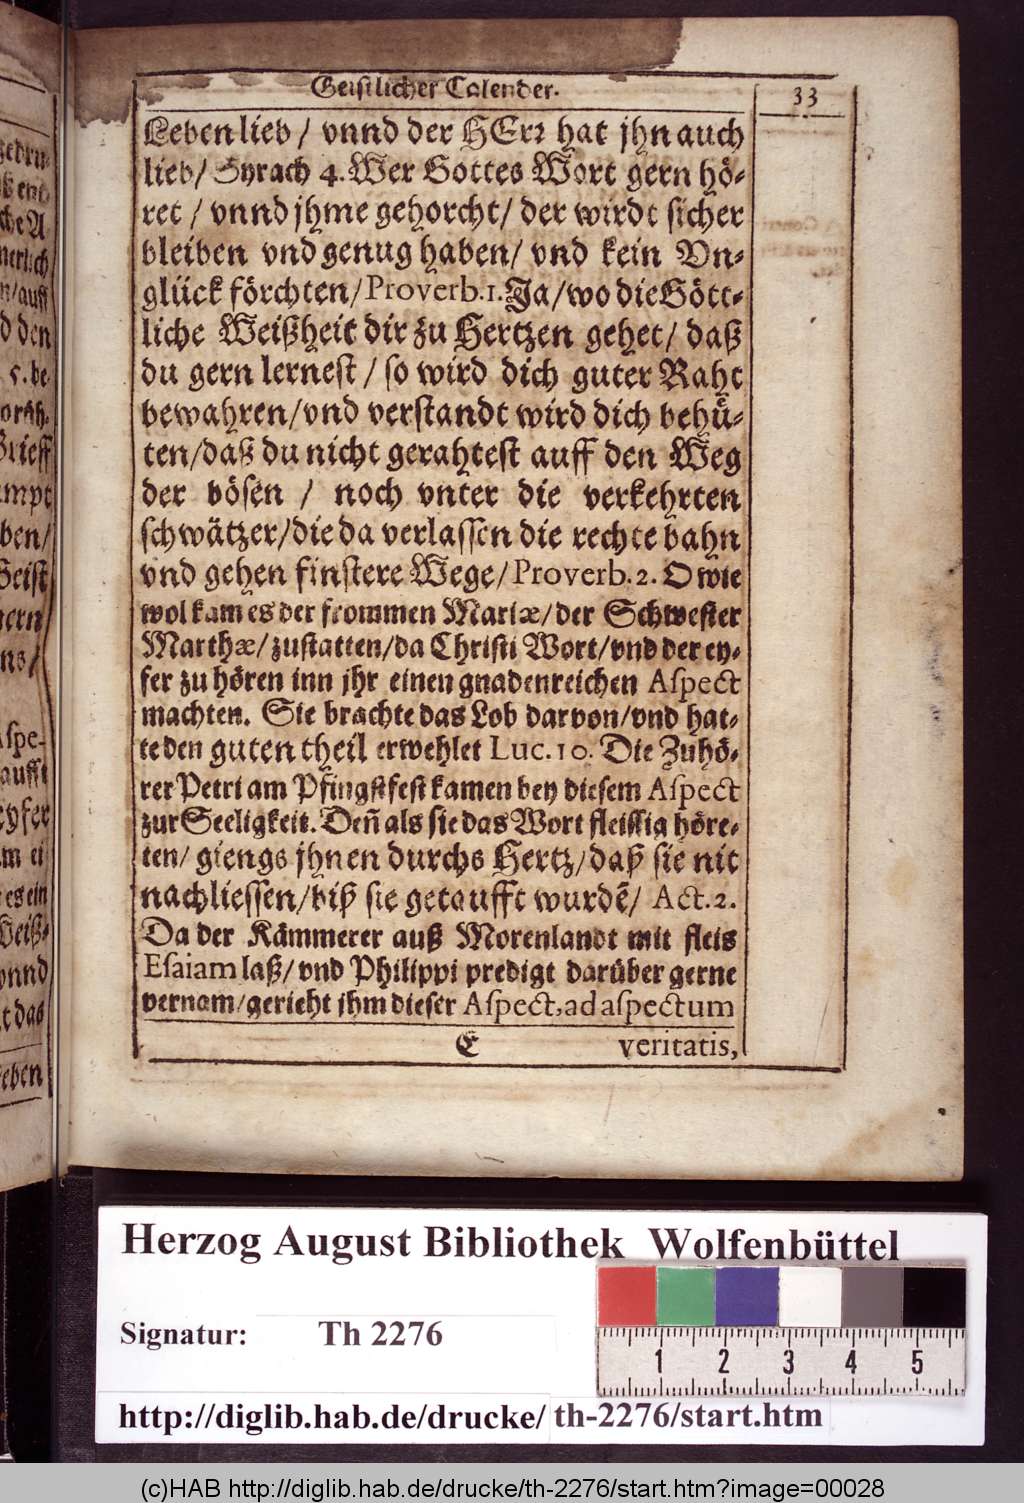 Geistlicher Calender.
33
Leben lieb / vnnd der HErr hat jhn auch
lieb / Syrach 4. Wer Gottes Wort gern hö-
ret / vnnd jhme gehorcht / der wirdt sicher
bleiben vnd genug haben / vnd kein Vn-
glück förchten / Proverb. 1. Ja / wo die Gött-
liche Weißheit dir zu Hertzen gehet / daß
du gern lernest / so wird dich guter Raht
bewahren / vnd verstandt wird dich behuͤ-
ten / daß du nicht gerahtest auff den Weg
der bösen / noch vnter die verkehrten
schwätzer / die da verlassen die rechte bahn
vnd gehen finstere Wege / Proverb. 2. O wie
wol kam es der frommen Mariæ / der Schwester
Marthæ / zustatten / da Christi Wort / vnd der ey-
fer zu hören inn jhr einen gnadenreichen Aſpect
machten. Sie brachte das Lob darvon / vnd hat-
te den guten theil erwehlet Luc. 10. Die Zuhö-
rer Petri am Pfingstfest kamen bey diesem Aſpect
zur Seeligkeit. Deñ als sie das Wort fleissig höre-
ten / giengs jhnen durchs Hertz / daß sie nit
nachliessen / biß sie getaufft wurdẽ / Act. 2.
Da der Kämmerer auß Morenlandt mit fleis
Eſaiam laß / vnd Philippi predigt darüber gerne
vernam / gerieht jhm dieser Aſpect, ad aſpectum
E
veritatis,
5. be-
mpt
ben /
ns /
Aſpe-
aufft
yfer
es ein
vnnd
t das
eben
Herzog August Bibliothek Wolfenbüttel
Signatur: Th 2276
1 2 3 4 5
http://diglib.hab.de/drucke/ th-2276/start.htm
(c)HAB http://diglib.hab.de/drucke/th-2276/start.htm?image=00028